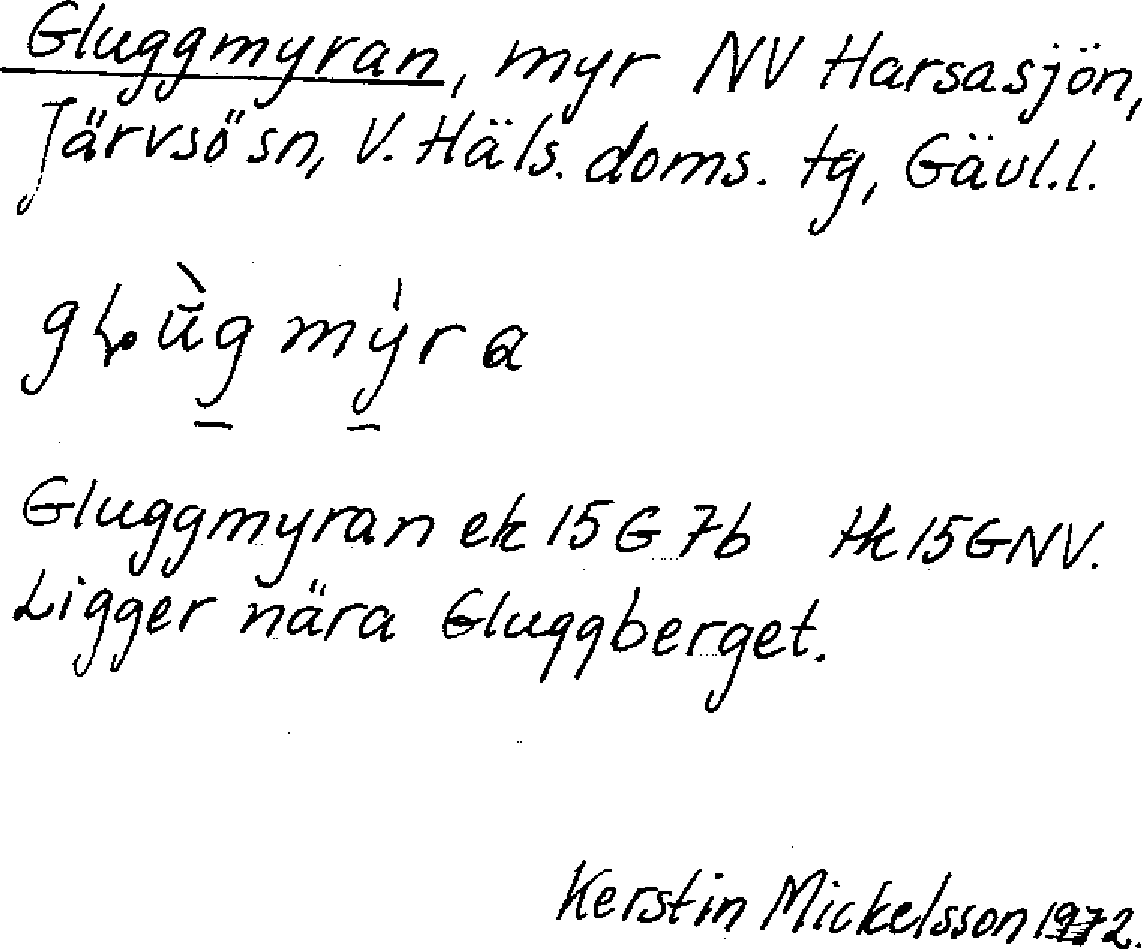 Gluggmyran, myr NV Harsasjön,
Järvsö sn, V. Häls. doms. tg, Gävl.l.
gḷùg mýra
Gluggmyran ek 15G 7b tk 15GNV.
Ligger nära Gluggberget.
Kerstin Mickelsson 1972.